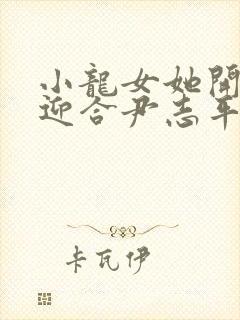 小龍女她開
迎合尹志平
卡瓦伊